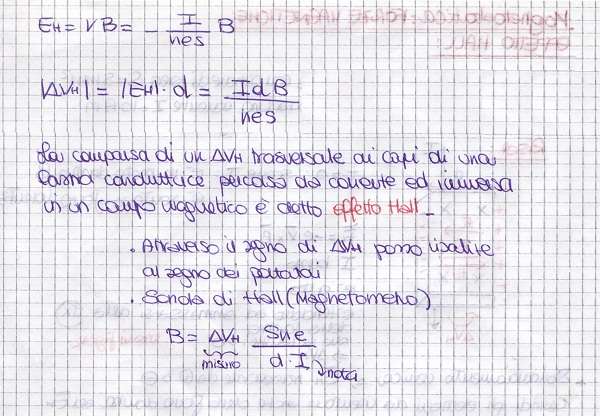 E_H = VB = - I/nes B
|ΔV_H| = |E_H| · d = IdB/nes
La comparsa di un ΔV_H trasversale ai capi di una
lamina conduttrice percorsa da corrente ed immersa
in un campo magnetico è detto effetto Hall.
· Attraverso il segno di ΔV_H posso risalire
al segno dei portatori
· Sonda di Hall (Magnetometro)
B = ΔV_H Sne/d·I
misuro nota